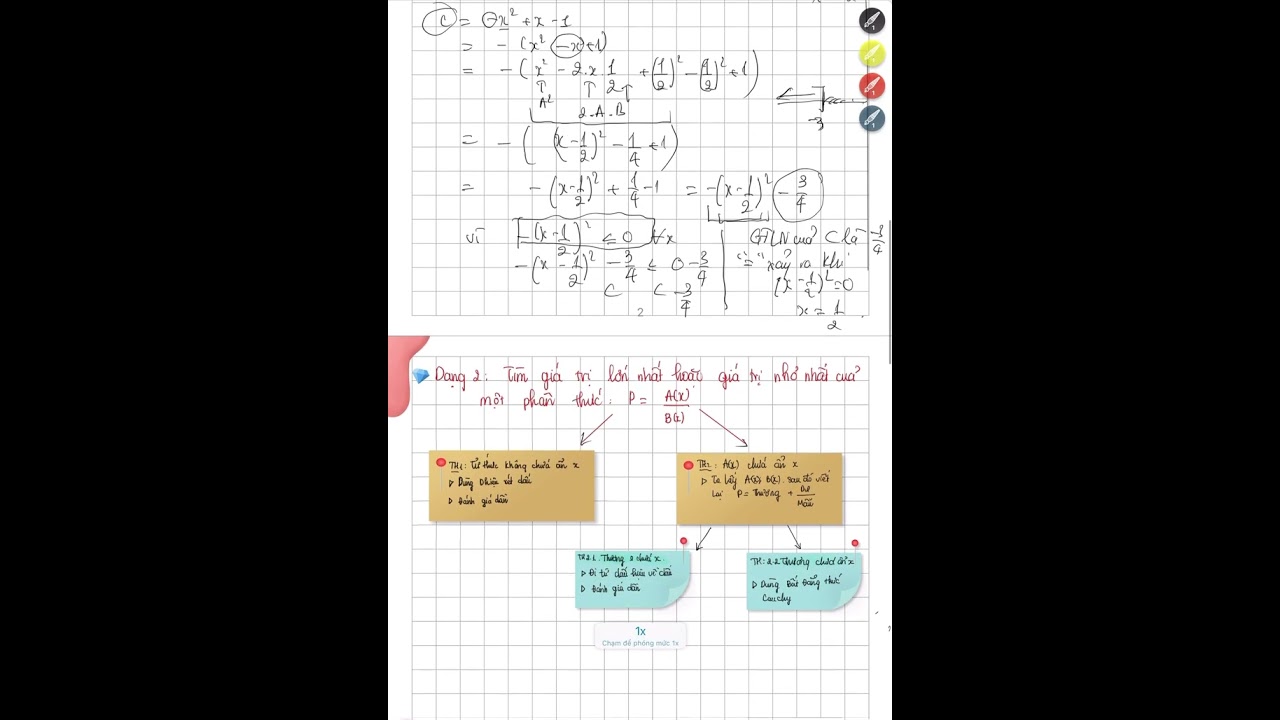 C = -x² + x - 1
= - (x² - x + 1)
= - (x² - 2.x.1/2 + (1/2)² - (1/2)² + 1)
A² 2.A.B
-3
= - ( (x - 1/2)² - 1/4 + 1)
= - (x - 1/2)² + 1/4 - 1 = - (x - 1/2)² - 3/4
Vì - (x - 1/2)² ≤ 0 ∀x
- (x - 1/2)² - 3/4 ≤ 0 - 3/4
C ≤ -3/4
GTLN của C là -3/4
"=" xảy ra khi
(x - 1/2)² = 0
x = 1/2
2
Dạng 2: Tìm giá trị lớn nhất hoặc giá trị nhỏ nhất của
một phân thức: P = A(x)/B(x)
TH1: Tử thức không chứa ẩn x
▷ Dùng xét dấu
▷ Đánh giá dần
TH2: A(x) chứa ẩn x
▷ Ta lấy A(x) B(x) sau đó viết
lại P = Thương + Dư/Mẫu
TH2.1. Thương x
▷ Đi từ dấu hiệu về dấu
▷ Đánh giá dần
TH: 2.2 Thương chứa ẩn x
▷ Dùng Bất đẳng thức
Cauchy
1x
Chạm để phóng mức 1x